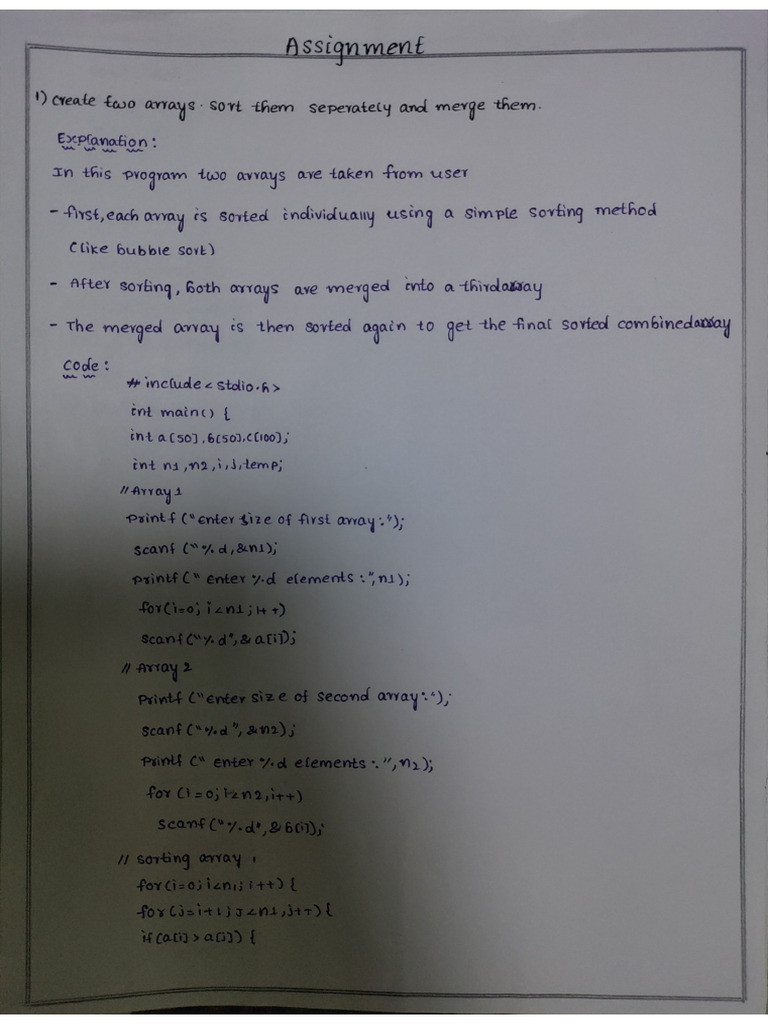 Assignment
1) Create two arrays. sort them seperately and merge them.
Explanation:
In this program two arrays are taken from user
- first, each array is sorted individually using a simple sorting method
(like bubble sort)
- After sorting, both arrays are merged into a third array
- The merged array is then sorted again to get the final sorted combined array
Code:
# include < stdio.h>
int main() {
int a[50], b[50], c[100];
int n1, n2, i, j, temp;
// Array 1
printf ("enter size of first array:");
scanf ("%d, &n1);
printf (" enter %d elements :", n1);
for(i=0; i<n1; i++)
scanf("%d", & a[i]);
// Array 2
printf ("enter size of second array:");
scanf ("%d", &n2);
printf (" enter %d elements :", n2);
for (i=0; i<n2, i++)
scanf ("%d", & b[i]);
// sorting array 1
for(i=0; i<n1; i++) {
for(j=i+1; j<n1, j++) {
if(a[i] > a[j]) {